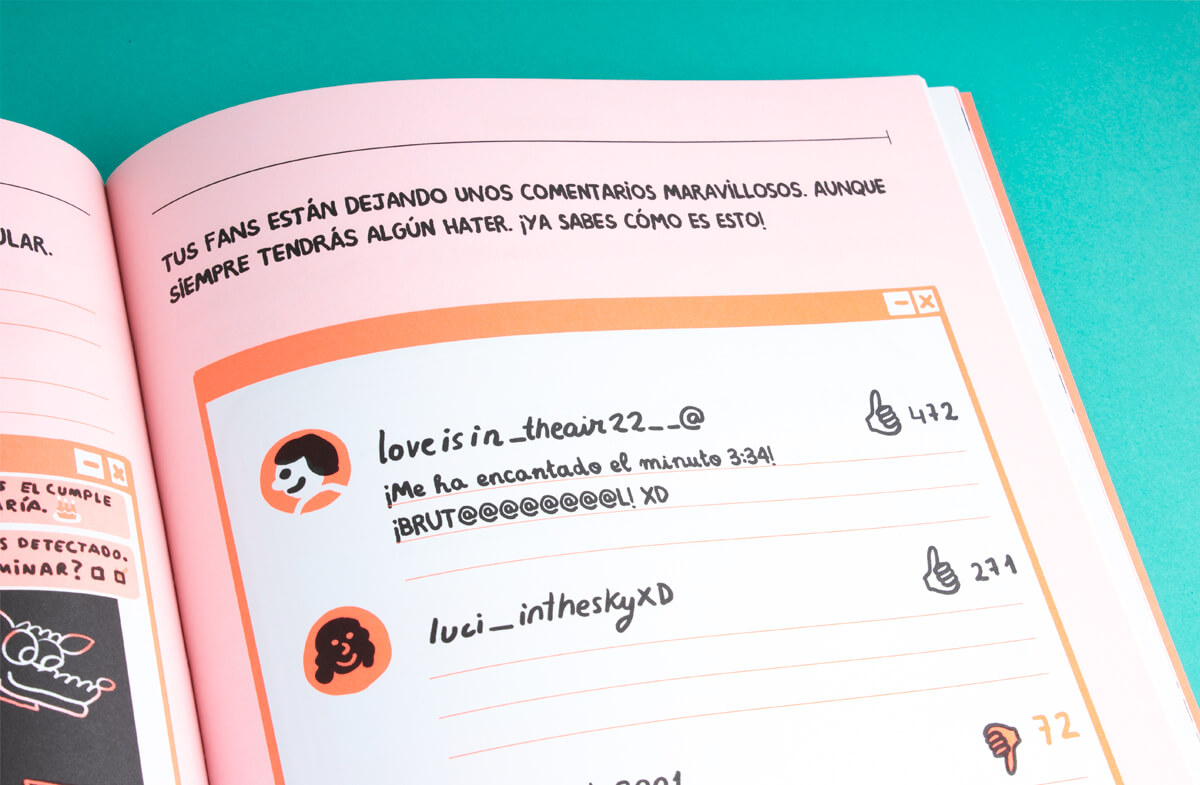 ULAR.
S EL CUMPLE
RÍA.
S DETECTADO.
MINAR?
TUS FANS ESTÁN DEJANDO UNOS COMENTARIOS MARAVILLOSOS. AUNQUE
SIEMPRE TENDRÁS ALGÚN HATER. ¡YA SABES CÓMO ES ESTO!
loveisin_theair22__@
472
¡Me ha encantado el minuto 3:34!
¡BRUT@@@@@@@@L! XD
luci_intheskyXD
271
72